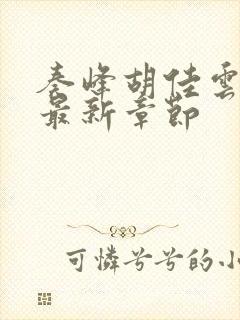 秦峰胡佳雲
最新章節
可憐兮兮的小